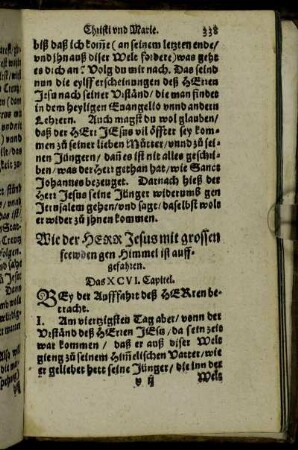 Christi vnd Marie. 338
biß daß ich kom̃e (an seinem letzten ende/
vnd jhn auß diser Welt fordere) was geht
es dich an? Volg du mir nach. Das seind
nun die eylff erscheinungen deß HErrn
Jesu nach seiner Vrständ/ die man findet
in dem heyligen Euangelio vnnd andern
Lehrern. Auch magst du wol glauben/
daß der HErr JEsus vil öffter sey kom-
men zů seiner lieben Můtter/ vnnd zů sei-
nen Jüngern/ dañ es ist nit alles geschri-
ben/ was der Herr gethan hat/ wie Sanct
Johannes bezeuget. Darnach hieß der
Herr Jesus seine Jünger widerumb gen
Jerusalem gehen/ vnd sagt/ daselbst wolt
er wider zů jhnen kommen.
Wie der HERR Jesus mit grossen
freewden gen Himmel ist auff-
gefahren.
Das XCVI. Capitel.
BEy der Aufffahrt deß HERren be-
tracht.
I. Am viertzigsten Tag aber/ vonn der
Vrständ deß HErren JEsu/ da sein zeit
war kommen/ daß er auß diser Welt
gieng zů seinem Him̃elischen Vatter/ wie
er geliebet hett seine Jünger/ die inn der
Welt